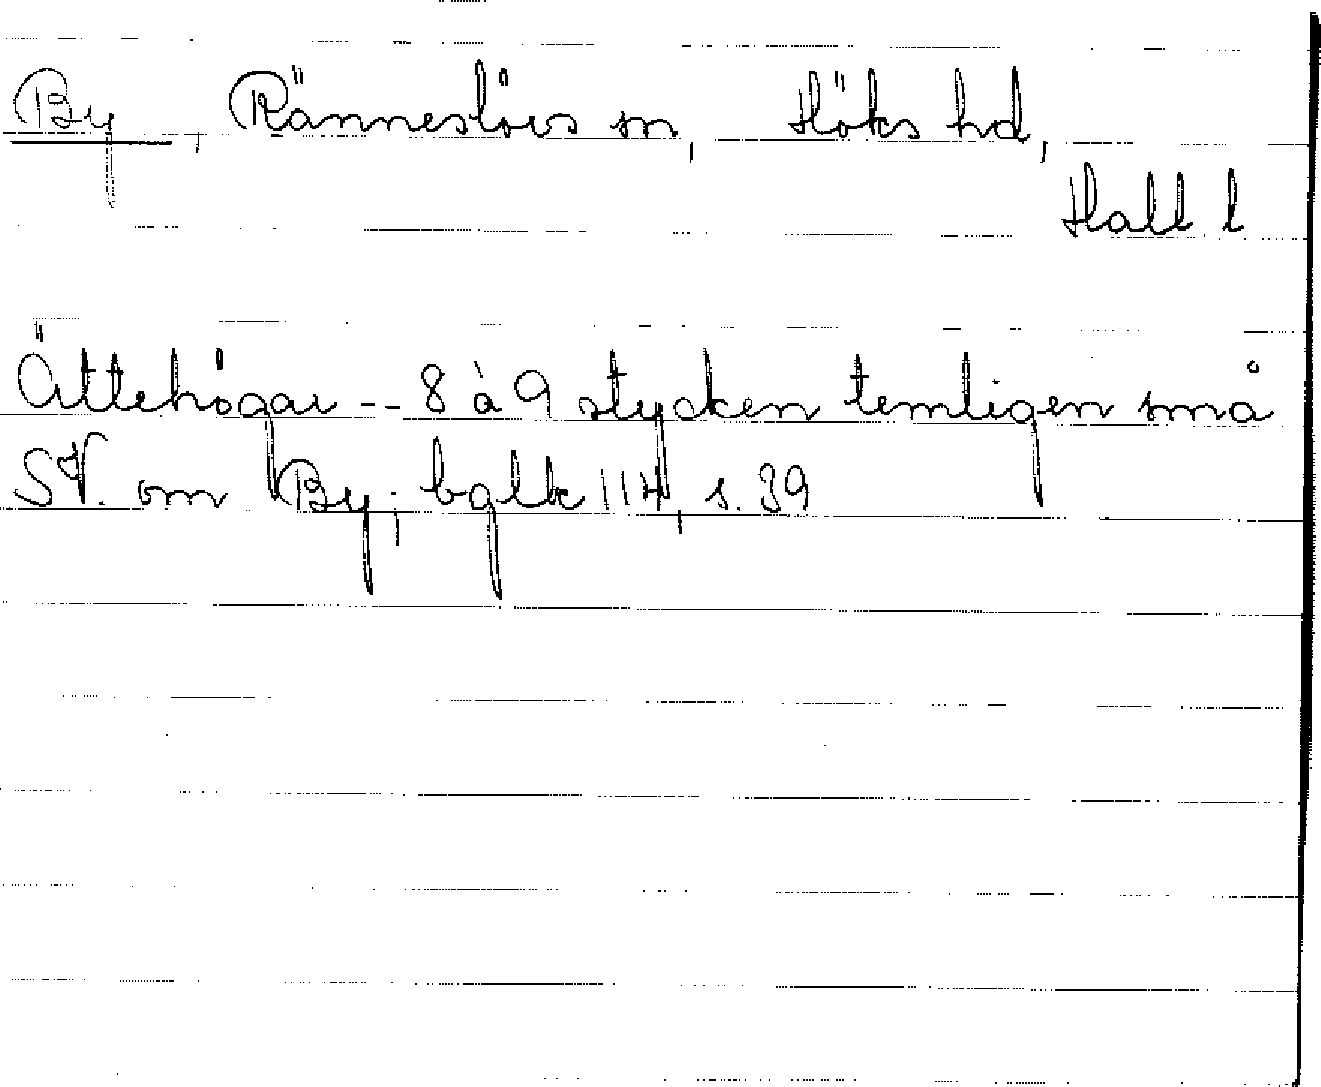 By, Ränneslövs sn, Höks hd,
Hall l
Ättehögar -- 8 à 9 stycken temligen små
SV. om By; bglk 114, s. 39